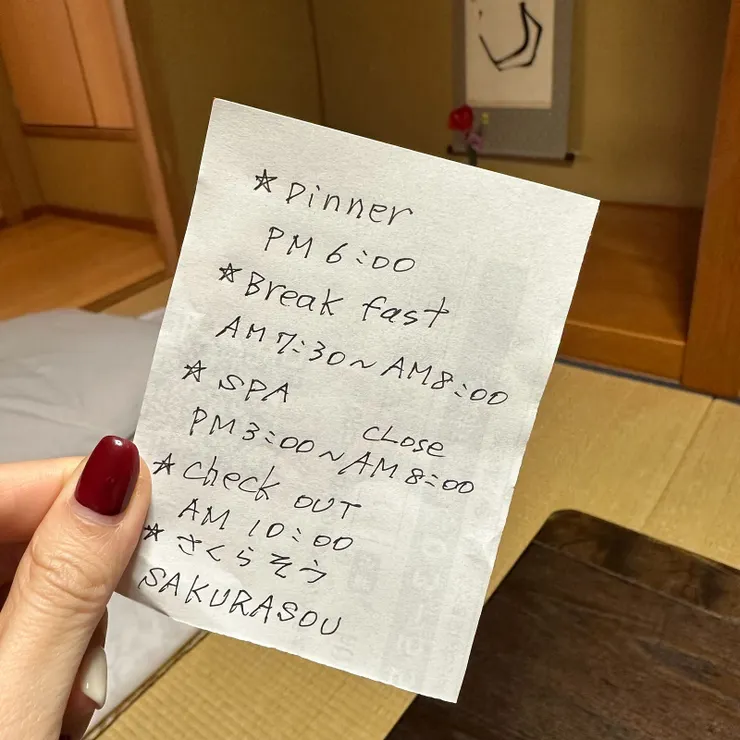 ☆ Dinner
PM 6:00
☆ Break fast
AM 7:30～AM 8:00
☆ SPA
CLOSE
PM 3:00～AM 8:00
☆ check OUT
AM 10:00
☆ さくらそう
SAKURASOU